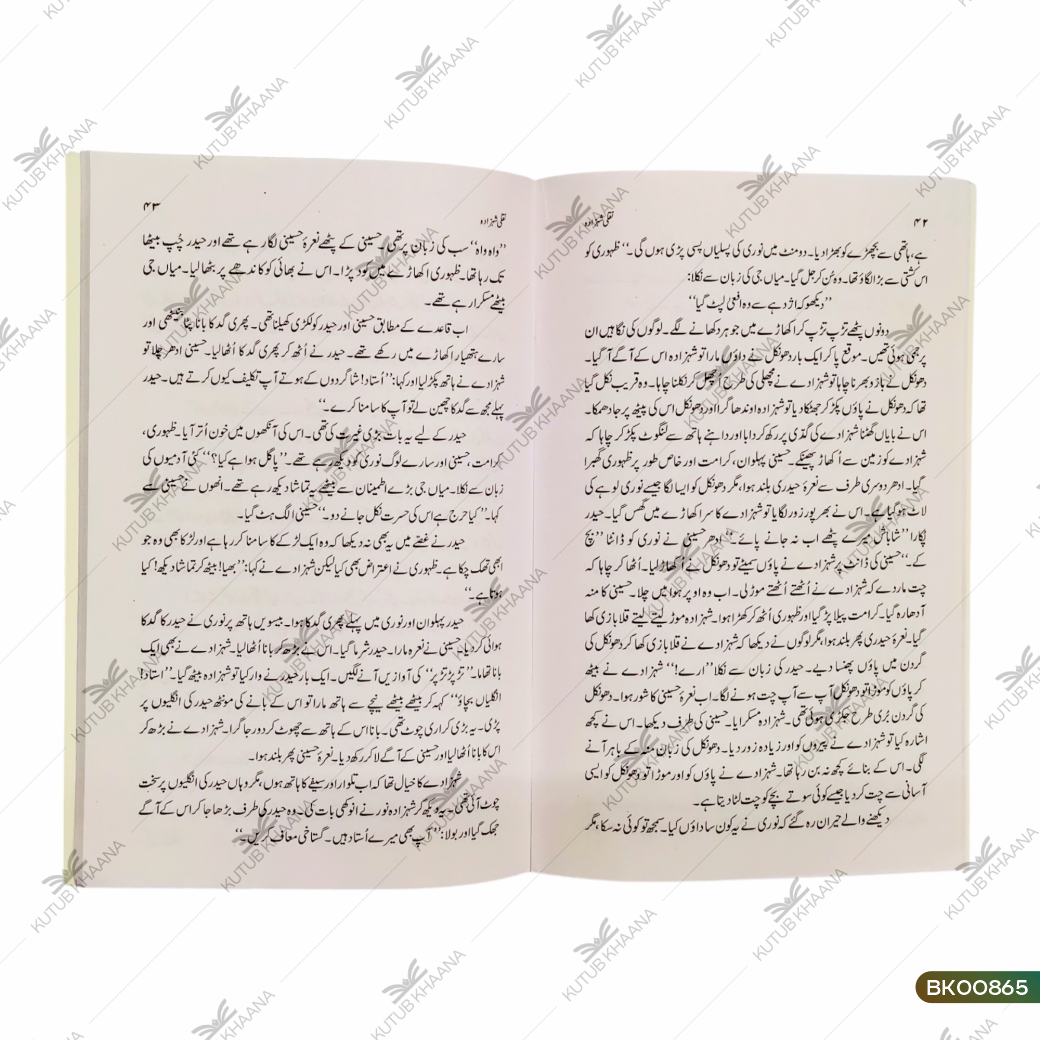 ۴۲
نقلی شہزادہ
ہے، ہاتھی سے بچھڑے کو بھڑا دیا۔ دو منٹ میں نوری کی پسلیاں پسی پڑی ہوں گی۔“ ظہوری کو
اس کشتی سے بڑا لگاؤ تھا۔ وہ سُن کر جل گیا۔ میاں جی کی زبان سے نکلا:
”دیکھو کہ اژدہے سے وہ افعیٰ لپٹ گیا“
دونوں پٹھے تڑپ تڑپ کر اکھاڑے میں جوہر دکھانے لگے۔ لوگوں کی نگاہیں ان
پر جمی ہوئی تھیں۔ موقع پا کر ایک بار دھونکل نے داؤں مارا تو شہزادہ اس کے آگے آ گیا۔
دھونکل نے بازو بھرنا چاہا تو شہزادے نے مچھلی کی طرح اُچھل کر نکلنا چاہا۔ وہ قریب نکل گیا
تھا کہ دھونکل نے پاؤں پکڑ کر جھٹکا دیا تو شہزادہ اوندھا گرا اور دھونکل اس کی پیٹھ پر جا دھمکا۔
اس نے بایاں گھٹنا شہزادے کی گدّی پر رکھ کر دبایا اور داہنے ہاتھ سے لنگوٹ پکڑ کر چاہا کہ
شہزادے کو زمین سے اُکھاڑ پھینکے۔ حسینی پہلوان، کرامت اور خاص طور پر ظہوری گھبرا
گیا۔ ادھر دوسری طرف سے نعرۂ حیدری بلند ہوا، مگر دھونکل کو ایسا لگا جیسے نوری لوہے کی
لاٹ ہو گیا ہے۔ اس نے بھر پور زور لگایا تو شہزادے کا سر اکھاڑے میں گھس گیا۔ حیدر
پکارا ”شاباش میرے پٹھے اب نہ جانے پائے۔“ ادھر حسینی نے نوری کو ڈانٹا ”بچ
کے۔“ حسینی کی ڈانٹ پر شہزادے نے پاؤں سمیٹے تو دھونکل نے اُکھاڑ لیا۔ اُٹھا کر چاہا کہ
چت مار دے کہ شہزادے نے اُٹھتے اُٹھتے موڑ لی۔ اب وہ اوپر ہوا میں چلا۔ حسینی کا منہ
آدھا رہ گیا۔ کرامت پیلا پڑ گیا اور ظہوری اُٹھ کر کھڑا ہوا۔ شہزادہ موڑ لیتے لیتے قلابازی کھا
گیا۔ نعرۂ حیدری پھر بلند ہوا، مگر لوگوں نے دیکھا کہ شہزادے نے قلابازی کھا کر دھونکل کی
گردن میں پاؤں پھنسا دیے۔ حیدر کی زبان سے نکلا ”ارے!“ شہزادے نے بیٹھ
کر پاؤں کو موڑا تو دھونکل آپ سے آپ چت ہونے لگا۔ اب نعرۂ حسینی کا شور ہوا۔ دھونکل
کی گردن بُری طرح جکڑی ہوئی تھی۔ شہزادہ مسکرایا۔ حسینی کی طرف دیکھا۔ اس نے کچھ
اشارہ کیا تو شہزادے نے پیروں کو اور زیادہ زور دیا۔ دھونکل کی زبان منہ کے باہر آنے
لگی۔ اس کے بنائے کچھ نہ بن رہا تھا۔ شہزادے نے پاؤں کو اور موڑا تو دھونکل کو ایسی
آسانی سے چت کر دیا جیسے کوئی سوتے بچے کو چت لٹا دیتا ہے۔
دیکھنے والے حیران رہ گئے کہ نوری نے یہ کون سا داؤں کیا۔ سمجھ تو کوئی نہ سکا، مگر
نقلی شہزادہ
۴۳
”واہ واہ“ سب کی زبان پر تھی۔ حسینی کے پٹھے نعرۂ حسینی لگا رہے تھے اور حیدر چُپ بیٹھا
تک رہا تھا۔ ظہوری اکھاڑے میں کود پڑا۔ اس نے بھائی کو کاندھے پر بٹھا لیا۔ میاں جی
بیٹھے مسکرا رہے تھے۔
اب قاعدے کے مطابق حسینی اور حیدر کو لکڑی کھیلنا تھی۔ پھری گدکا بانا پٹا بنیٹھی اور
سارے ہتھیار اکھاڑے میں رکھے تھے۔ حیدر نے اُٹھ کر پھری گدکا اُٹھا لیا۔ حسینی ادھر چلا تو
شہزادے نے ہاتھ پکڑ لیا اور کہا: ”اُستاد! شاگردوں کے ہوتے آپ تکلیف کیوں کرتے ہیں۔ حیدر
پہلے مجھ سے گدکا چھین لے تو آپ کا سامنا کرے۔“
حیدر کے لیے یہ بات بڑی غیرت کی تھی۔ اس کی آنکھوں میں خون اُتر آیا۔ ظہوری،
کرامت، حسینی اور سارے لوگ نوری کو دیکھ رہے تھے۔ ”پاگل ہوا ہے کیا؟“ کئی آدمیوں کی
زبان سے نکلا۔ میاں جی بڑے اطمینان سے بیٹھے یہ تماشا دیکھ رہے تھے۔ انھوں نے حسینی سے
کہا۔ ”کیا حرج ہے اس کی حسرت نکل جانے دو۔“ حسینی الگ ہٹ گیا۔
حیدر نے غصّے میں یہ بھی نہ دیکھا کہ وہ ایک لڑکے کا سامنا کر رہا ہے اور لڑکا بھی وہ جو
ابھی تھک چکا ہے۔ ظہوری نے اعتراض بھی کیا لیکن شہزادے نے کہا: ”بھیا! بیٹھ کر تماشا دیکھ! کیا
ہوتا ہے۔“
حیدر پہلوان اور نوری میں پہلے پھری گدکا ہوا۔ بیسویں ہاتھ پر نوری نے حیدر کا گدکا
ہوائی کر دیا۔ حسینی نے نعرہ مارا۔ حیدر شرما گیا۔ اس نے بڑھ کر بانا اُٹھا لیا۔ شہزادے نے بھی ایک
بانا تھاما۔ ”تڑپڑ تڑپڑ“ کی آوازیں آنے لگیں۔ ایک بار حیدر نے وار کیا تو شہزادہ بیٹھ گیا۔ ”اُستاد!
انگلیاں بچاؤ“ کہہ کر بیٹھے بیٹھے نیچے سے ہاتھ مارا تو اس کے بانے کی مونٹھ حیدر کی انگلیوں پر
پڑی۔ یہ بڑی کراری چوٹ تھی۔ بانا اس کے ہاتھ سے چھوٹ کر دور جا گرا۔ شہزادے نے بڑھ کر
اس کا بانا اُٹھا لیا اور حسینی کے آگے لا کر رکھ دیا۔ نعرۂ حسینی پھر بلند ہوا۔
شہزادے کا خیال تھا کہ اب تلوار اور سیفے کا ہاتھ ہوں، مگر وہاں حیدر کی انگلیوں پر سخت
چوٹ آئی تھی۔ یہ دیکھ کر شہزادہ نور نے انوکھی بات کی۔ وہ حیدر کی طرف بڑھا جا کر اس کے آگے
جھک گیا اور بولا: ”آپ بھی میرے اُستاد ہیں۔ گستاخی معاف کریں۔“
BK00865
KUTUB KHAANA